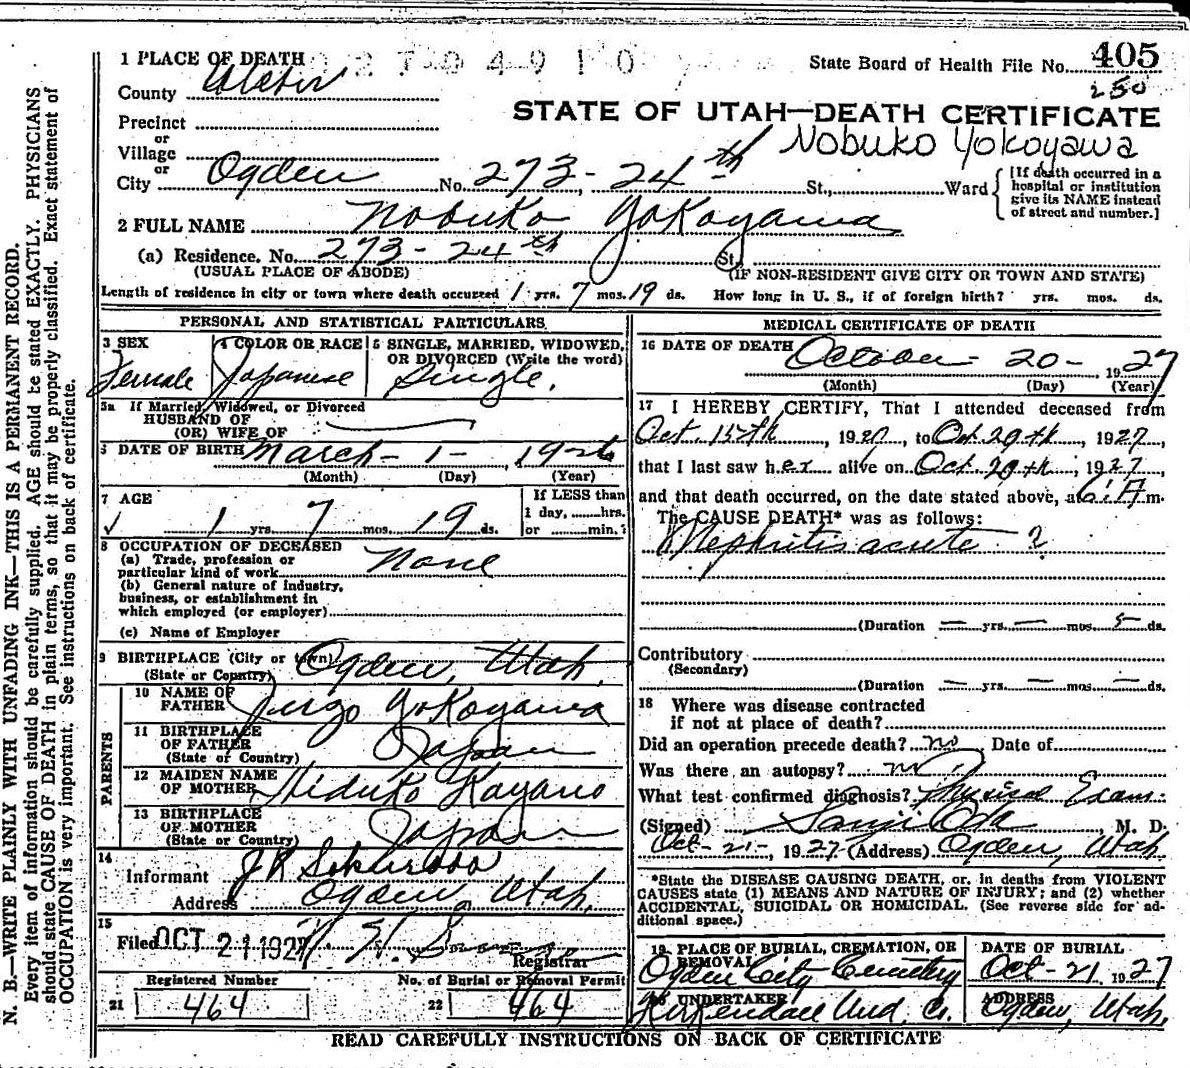 N. B.—WRITE PLAINLY WITH UNFADING INK—THIS IS A PERMANENT RECORD.
Every item of information should be carefully supplied. AGE should be stated EXACTLY. PHYSICIANS
should state CAUSE OF DEATH in plain terms, so that it may be properly classified. Exact statement of
OCCUPATION is very important. See instructions on back of certificate.
1 PLACE OF DEATH
State Board of Health File No. 405
250
County Weber
STATE OF UTAH—DEATH CERTIFICATE
Precinct
or
Village
Nobuko Yokoyawa
or
City Ogden No. 273 - 24th St., Ward
[If death occurred in a
hospital or institution
give its NAME instead
of street and number.]
2 FULL NAME Nobuko Yokoyawa
(a) Residence. No. 273 - 24th St.
(USUAL PLACE OF ABODE) (IF NON-RESIDENT GIVE CITY OR TOWN AND STATE)
Length of residence in city or town where death occurred 1 yrs. 7 mos. 19 ds. How long in U. S., if of foreign birth? yrs. mos. ds.
PERSONAL AND STATISTICAL PARTICULARS
3 SEX
Female
4 COLOR OR RACE
Japanese
5 SINGLE, MARRIED, WIDOWED,
OR DIVORCED (Write the word)
Single.
5a If Married, Widowed, or Divorced
HUSBAND OF
(OR) WIFE OF
6 DATE OF BIRTH March - 1 - , 1926
(Month) (Day) (Year)
7 AGE
1 yrs. 7 mos. 19 ds.
If LESS than
1 day, hrs.
or min.?
8 OCCUPATION OF DECEASED
(a) Trade, profession or
particular kind of work None
(b) General nature of industry,
business, or establishment in
which employed (or employer)
(c) Name of Employer
9 BIRTHPLACE (City or town) Ogden, Utah.
(State or Country)
PARENTS
10 NAME OF
FATHER Jingo Yokoyawa
11 BIRTHPLACE
OF FATHER Japan
(State or Country)
12 MAIDEN NAME
OF MOTHER Hiduko Kayano
13 BIRTHPLACE
OF MOTHER Japan
(State or Country)
14
Informant J R
Address Ogden, Utah.
15
Filed OCT 21 1927
Registrar
Registered Number
21 464
No. of Burial or Removal Permit
22 464
MEDICAL CERTIFICATE OF DEATH
16 DATE OF DEATH October - 20 - 1927
(Month) (Day) (Year)
17 I HEREBY CERTIFY, That I attended deceased from
Oct. 15th, 1927, to Oct. 20th, 1927,
that I last saw her alive on Oct. 20th, 1927,
and that death occurred, on the date stated above, at 6: A m.
The CAUSE DEATH* was as follows:
Nephritis acute ?
(Duration — yrs. — mos. 5 ds.
Contributory
(Secondary)
(Duration — yrs. — mos. — ds.
18 Where was disease contracted
if not at place of death?
Did an operation precede death? no Date of
Was there an autopsy? no
What test confirmed diagnosis? Physical Exam.
(Signed) Sanji Oda M. D.
Oct - 21 - , 1927 (Address) Ogden, Utah
*State the DISEASE CAUSING DEATH, or, in deaths from VIOLENT
CAUSES state (1) MEANS AND NATURE OF INJURY; and (2) whether
ACCIDENTAL, SUICIDAL OR HOMICIDAL. (See reverse side for ad-
ditional space.)
19 PLACE OF BURIAL, CREMATION, OR
REMOVAL
Ogden City Cemetery
DATE OF BURIAL
Oct - 21 1927
20 UNDERTAKER
Kirkendall Und. Co.
ADDRESS
Ogden, Utah.
READ CAREFULLY INSTRUCTIONS ON BACK OF CERTIFICATE